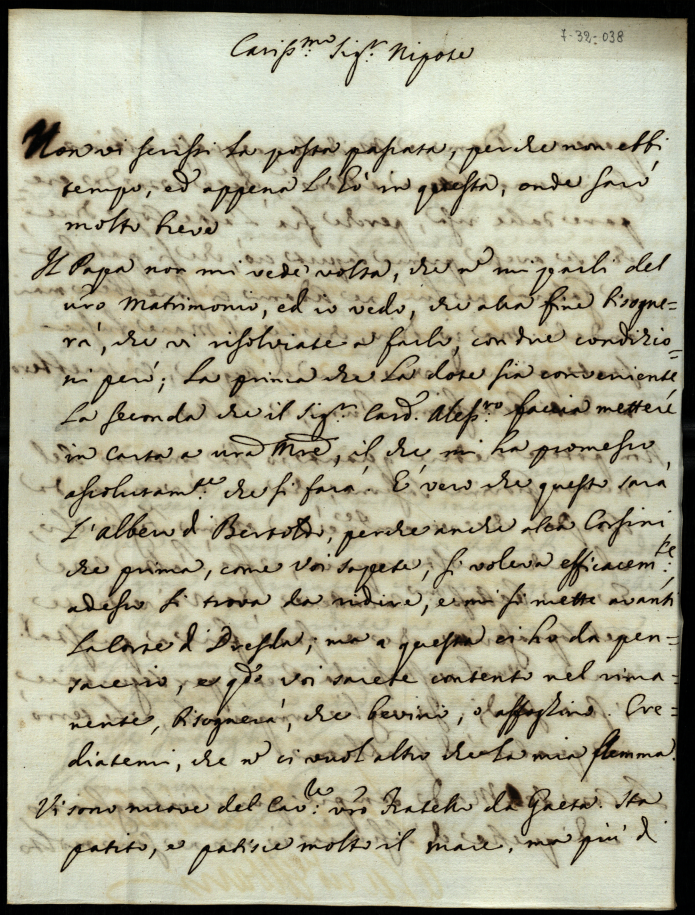 7-32-038
Cariss.mo Sig.r Nipote
Non vi scrissi la posta passata, perche non ebbi
tempo, ed appena l'hò in questa, onde sarò
molto breve
Il Papa non mi vede volta, che nõ mi parli del
vr̃o Matrimonio, ed io vedo, che alla fine bisogne=
rà, che vi risolviate a farlo, con due condizio=
ni però; La prima che la dote sia conveniente
La seconda che il Sig.r Card. Aless.ro faccia mettere
in carta a vr̃a Mr̃e, il che mi ha promesso
assolutam.te che si farà. È vero che questo sarà
l'albero di Bertoldo, perche anche alla Corsini
che prima, come voi sapete, si voleva efficacem.te
adesso si trova da ridire, e mi si mette avanti
la Corte di Dresda; ma a questa ci ho da pen=
sare io, e qdo voi sarete contento nel rima=
nente, bisognerà, che bevini, o affoghino. Cre=
diatemi, che nõ ci vuol altro che la mia flemma.
Vi sono nuove del Cav.re vr̃o Fratello da Gaeta. Ha
patito, e patisce molto il mare, ma più di